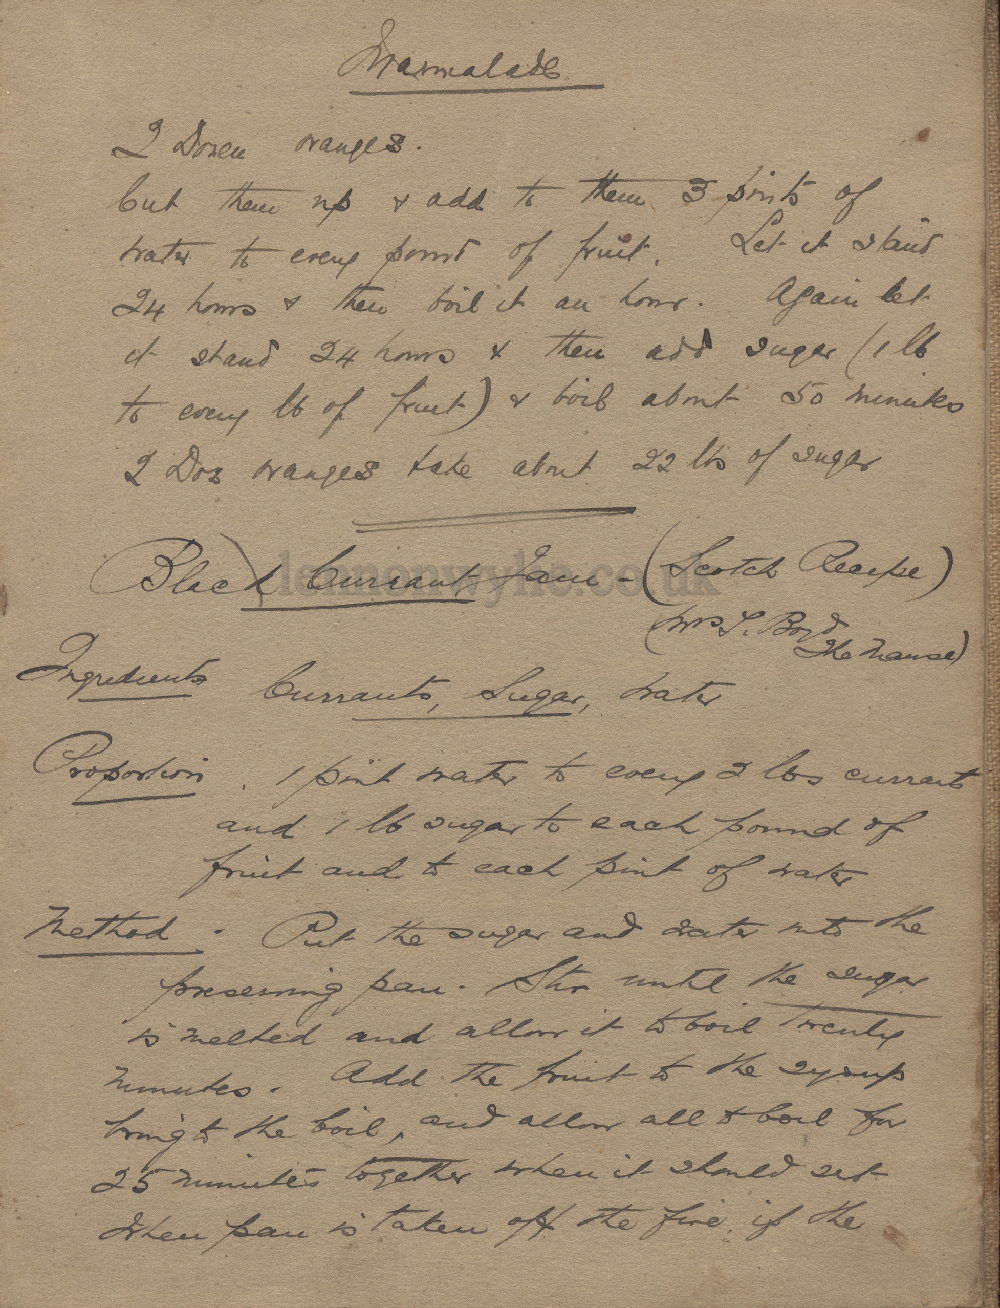 Marmalade
2 Dozen oranges.
Cut them up & add to them 3 pints of
water to every pound of fruit. Let it stand
24 hours & then boil it an hour. Again let
it stand 24 hours & then add sugar (1 lb
to every lb of fruit) & boil about 50 minutes
2 Doz oranges take about 22 lbs of sugar
Black Currant Jam - (Scotch Recipe)
lennonwylie.co.uk
(Mrs T. Boyd
The Manse)
Ingredients Currants, Sugar, water
Proportion. 1 pint water to every 2 lbs currants
and 1 lb sugar to each pound of
fruit and to each pint of water
Method - Put the sugar and water into the
preserving pan. Stir until the sugar
is melted and allow it to boil twenty
minutes. Add the fruit to the syrup
bring to the boil, and allow all to boil for
25 minutes together when it should set
When pan is taken off the fire, if the